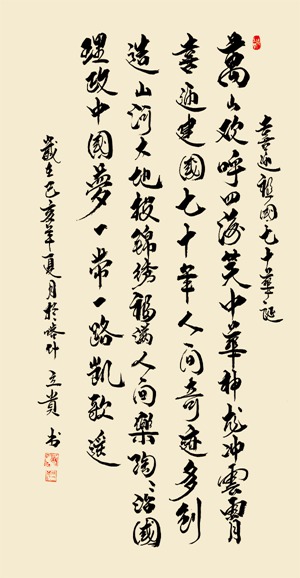 喜迎祖国七十华诞
万山欢呼四海笑中华神龙冲云霄
喜迎建国七十年人间奇迹多创
造山河大地披锦绣福满人间乐陶陶治国
理政中国梦一带一路凯歌遥
岁在己亥年夏月於喀什 立贵书